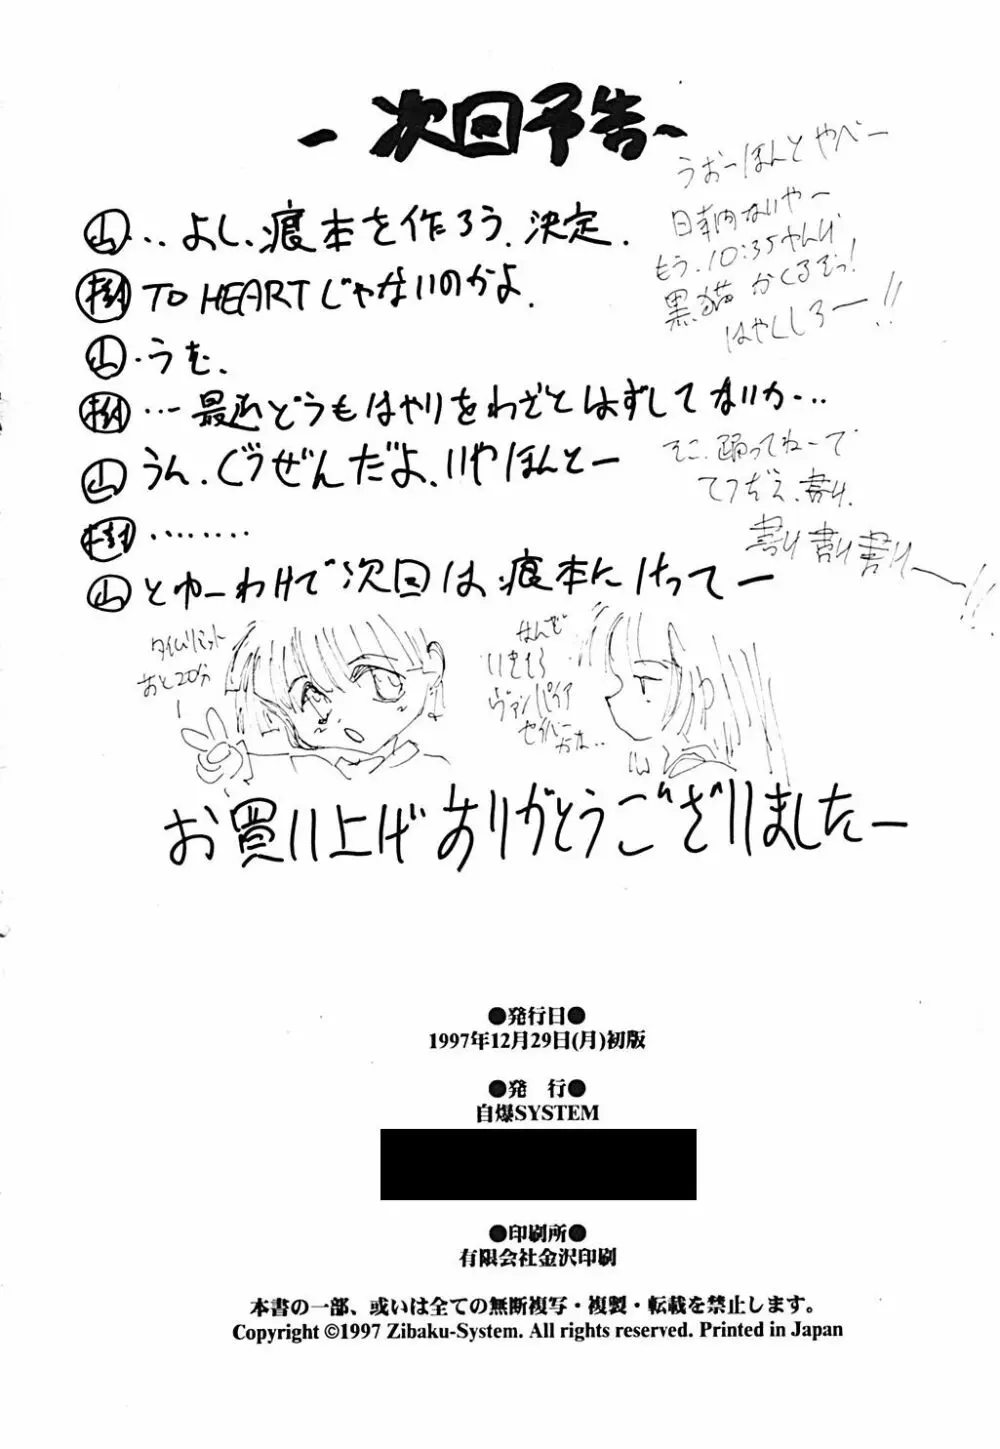 ー次回予告ー
山‥よし、痕本を作ろう。決定。
樹 TO HEARTじゃないのかよ。
山・うむ。
樹…最近どうもはやりをわざとはずしてないか…
山 うん、ぐうぜんだよ、いやほんとー
樹………
山 とゆーわけで次回は痕本にけってー
うおーほんとやべー
もう、10:35やんけ
黒猫かくるぞっ!
はやくしろー!!
そこ、踊ってねーで
てつだえ、書け、
書け書け書けー!!
タイムリミット
あと20分
ー
なんで
いきなし
ヴァンパイア
セイバー
かね‥
お買い上げありがとうございましたー
●発行日●
1997年12月29日(月)初版
●発　行●
自爆SYSTEM
●印刷所●
有限会社金沢印刷
本書の一部、或いは全ての無断複写・複製・転載を禁止します。
Copyright ©1997 Zibaku-System. All rights reserved. Printed in Japan